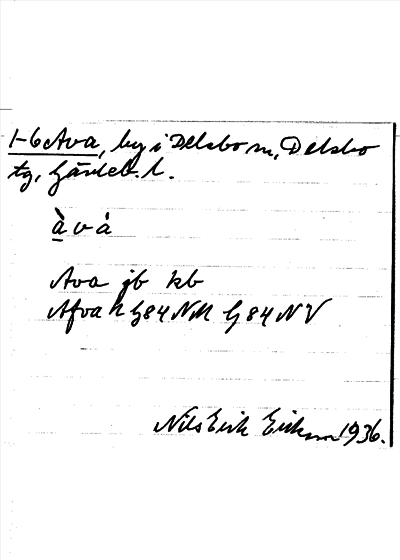 1-6 Ava, by i Delsbo sn, Delsbo
tg, Gävleb. l.
àvá
Ava jb kb
Afva h G84NM G84NV
Nils Erik Erikson 1936.